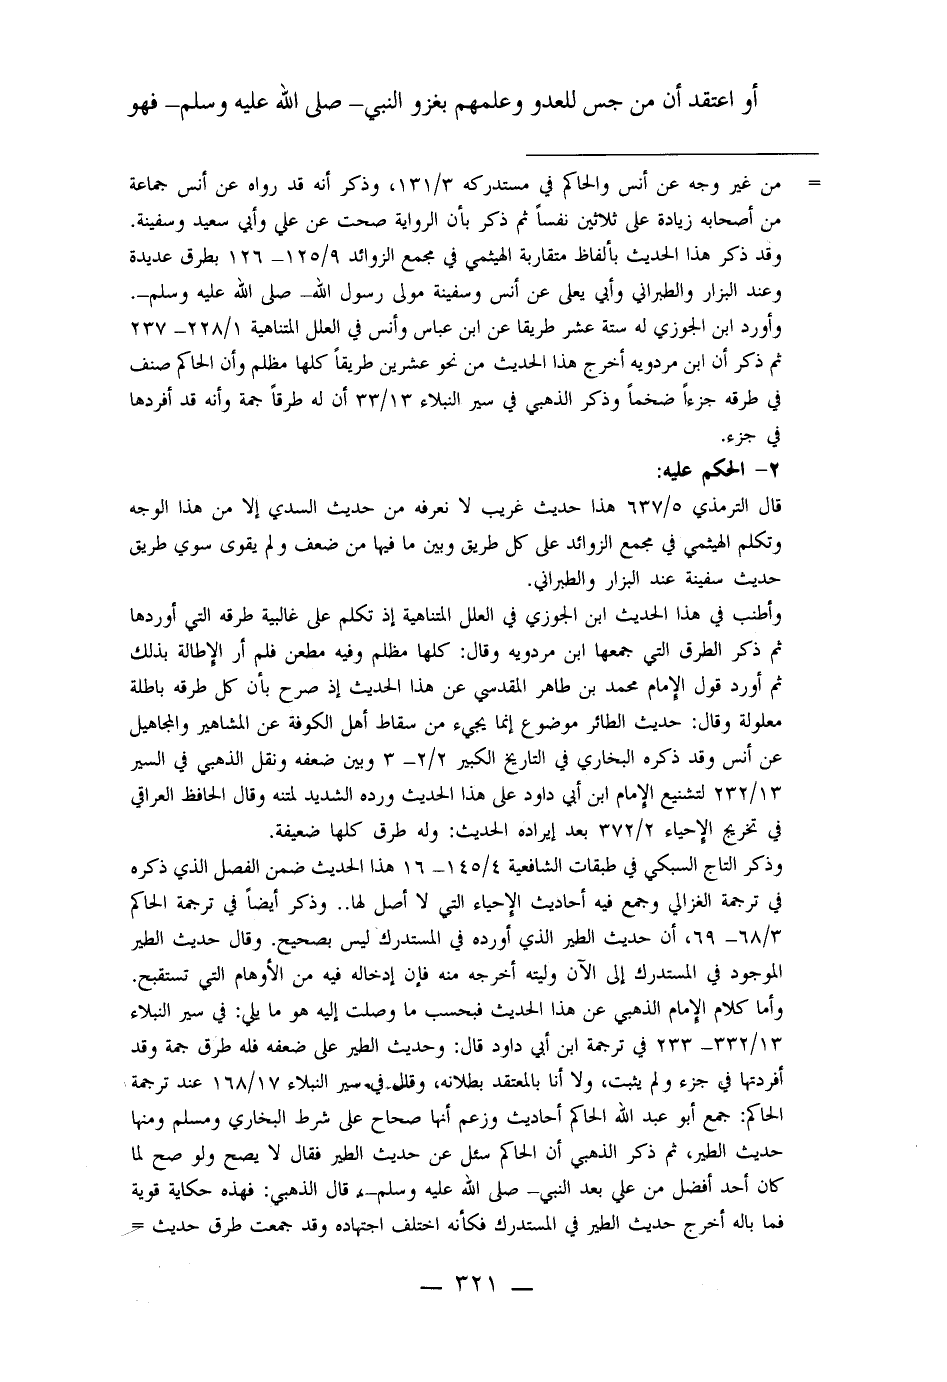 أو اعتقد أن من جس للعدو وعلمهم بغزو النبي– صلى الله عليه وسلم– فهو
= من غير وجه عن أنس والحاكم في مستدركه ١٣١/٣، وذكر أنه قد رواه عن أنس جماعة
من أصحابه زيادة على ثلاثين نفساً ثم ذكر بأن الرواية صحت عن علي وأبي سعيد وسفينة.
وقد ذكر هذا الحديث بألفاظ متقاربة الهيثمي في مجمع الزوائد ١٢٥/٩– ١٢٦ بطرق عديدة
وعند البزار والطبراني وأبي يعلى عن أنس وسفينة مولى رسول الله– صلى الله عليه وسلم–.
وأورد ابن الجوزي له ستة عشر طريقا عن ابن عباس وأنس في العلل المتناهية ٢٢٨/١– ٢٣٧
ثم ذكر أن ابن مردويه أخرج هذا الحديث من نحو عشرين طريقاً كلها مظلم وأن الحاكم صنف
في طرقه جزءاً ضخماً وذكر الذهبي في سير النبلاء ٣٣/١٣ أن له طرقاً جمة وأنه قد أفردها
في جزء.
٢– الحكم عليه:
قال الترمذي ٦٣٧/٥ هذا حديث غريب لا نعرفه من حديث السدي إلا من هذا الوجه
وتكلم الهيثمي في مجمع الزوائد على كل طريق وبين ما فيها من ضعف ولم يقوى سوي طريق
حديث سفينة عند البزار والطبراني.
وأطنب في هذا الحديث ابن الجوزي في العلل المتناهية إذ تكلم على غالبية طرقه التي أوردها
ثم ذكر الطرق التي جمعها ابن مردويه وقال: كلها مظلم وفيه مطعن فلم أر الإطالة بذلك
ثم أورد قول الإمام محمد بن طاهر المقدسي عن هذا الحديث إذ صرح بأن كل طرقه باطلة
معلولة وقال: حديث الطائر موضوع إنما يجيء من سقاط أهل الكوفة عن المشاهير والمجاهيل
عن أنس وقد ذكره البخاري في التاريخ الكبير ٢/٢– ٣ وبين ضعفه ونقل الذهبي في السير
٢٣٢/١٣ لتشنيع الإمام ابن أبي داود على هذا الحديث ورده الشديد لمتنه وقال الحافظ العراقي
في تخريج الإحياء ٣٧٢/٢ بعد إيراده الحديث: وله طرق كلها ضعيفة.
وذكر التاج السبكي في طبقات الشافعية ١٤٥/٤– ١٦ هذا الحديث ضمن الفصل الذي ذكره
في ترجمة الغزالي وجمع فيه أحاديث الإحياء التي لا أصل لها.. وذكر أيضاً في ترجمة الحاكم
٦٨/٣– ٦٩، أن حديث الطير الذي أورده في المستدرك ليس بصحيح. وقال حديث الطير
الموجود في المستدرك إلى الآن وليته أخرجه منه فإن إدخاله فيه من الأوهام التي تستقبح.
وأما كلام الإمام الذهبي عن هذا الحديث فبحسب ما وصلت إليه هو ما يلي: في سير النبلاء
٣٣٢/١٣– ٢٣٣ في ترجمة ابن أبي داود قال: وحديث الطير على ضعفه فله طرق جمة وقد
أفردتها في جزء ولم يثبت، ولا أنا بالمعتقد بطلانه، وقال في سير النبلاء ١٦٨/١٧ عند ترجمة
الحاكم: جمع أبو عبد الله الحاكم أحاديث وزعم أنها صحاح على شرط البخاري ومسلم ومنها
حديث الطير، ثم ذكر الذهبي أن الحاكم سئل عن حديث الطير فقال لا يصح ولو صح لما
كان أحد أفضل من علي بعد النبي– صلى الله عليه وسلم–، قال الذهبي: فهذه حكاية قوية
فما باله أخرج حديث الطير في المستدرك فكأنه اختلف اجتهاده وقد جمعت طرق حديث =
– ٣٢١ –